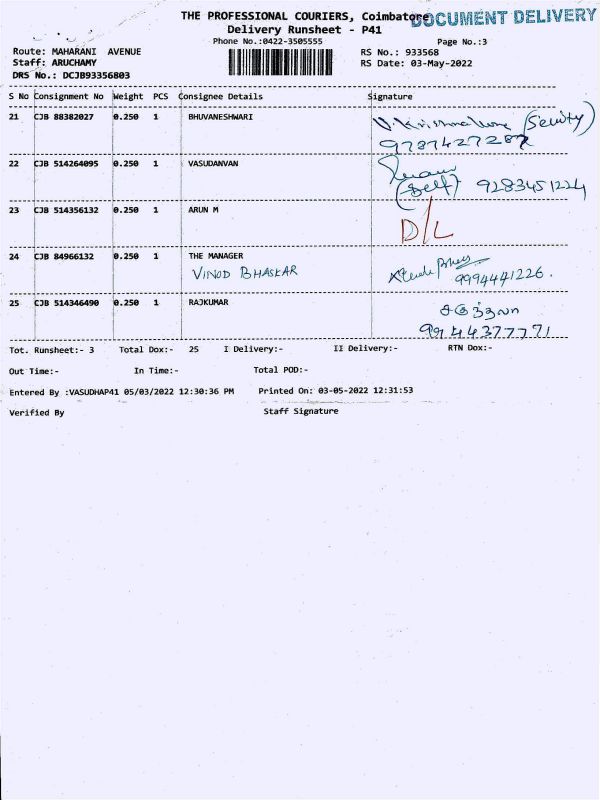 THE PROFESSIONAL COURIERS, Coimbatore
DOCUMENT DELIVERY
Delivery Runsheet - P41
Phone No.:0422-3505555
Page No.:3
Route: MAHARANI AVENUE
RS No.: 933568
Staff: ARUCHAMY
RS Date: 03-May-2022
DRS No.: DCJB93356803
S No Consignment No Weight PCS Consignee Details Signature
21 CJB 88382027 0.250 1 BHUVANESHWARI
22 CJB 514264095 0.250 1 VASUDANVAN
(Self)
23 CJB 514356132 0.250 1 ARUN M
D/L
24 CJB 84966132 0.250 1 THE MANAGER
VINOD BHASKAR
9994441226.
25 CJB 514346490 0.250 1 RAJKUMAR
சகுந்தலா
9944377771
Tot. Runsheet:- 3 Total Dox:- 25 I Delivery:- II Delivery:- RTN Dox:-
Out Time:- In Time:- Total POD:-
Entered By :VASUDHAP41 05/03/2022 12:30:36 PM Printed On: 03-05-2022 12:31:53
Verified By Staff Signature